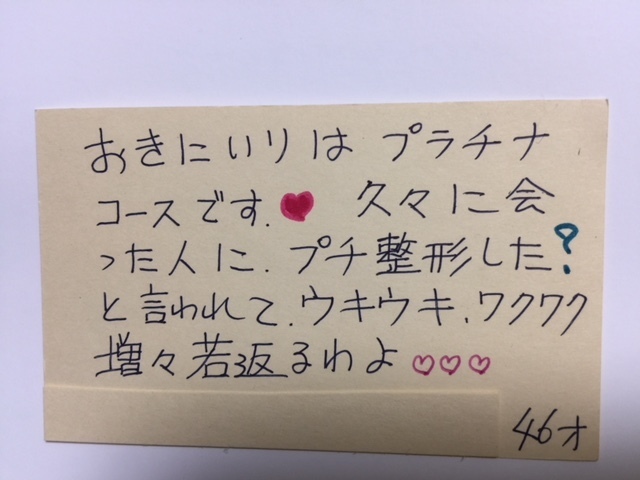 おきにいりは プラチナ
コースです.♥ 久々に会
った人に.プチ整形した?
と言われて.ウキウキ、ワクワク
増々若返るわよ♡♡♡
46才